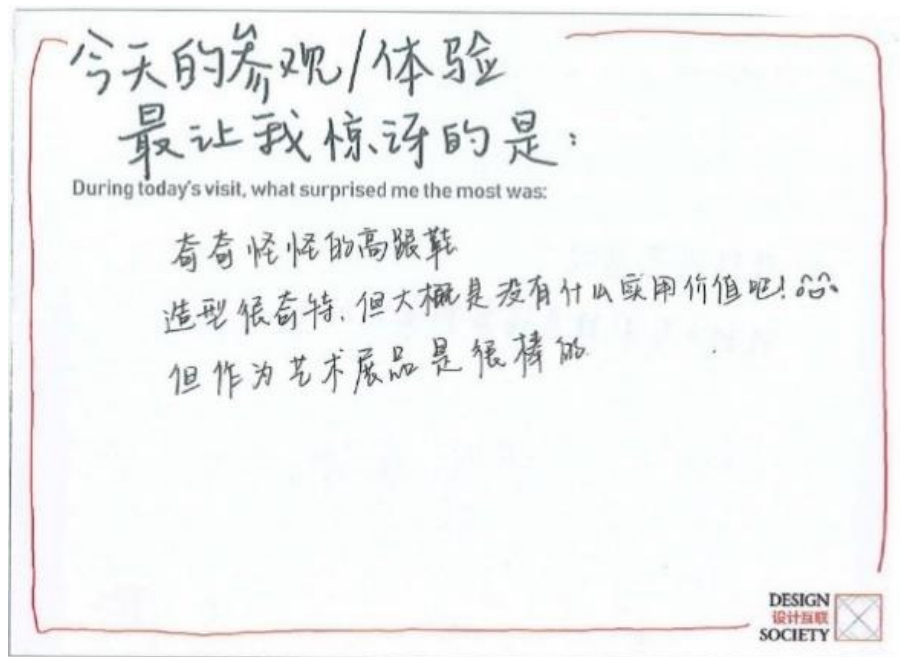 今天的参观/体验
最让我惊讶的是：
During today's visit, what surprised me the most was:
奇奇怪怪的高跟鞋
造型很奇特，但大概是没有什么实用价值吧！
但作为艺术展品是很棒的
DESIGN
设计互联
SOCIETY